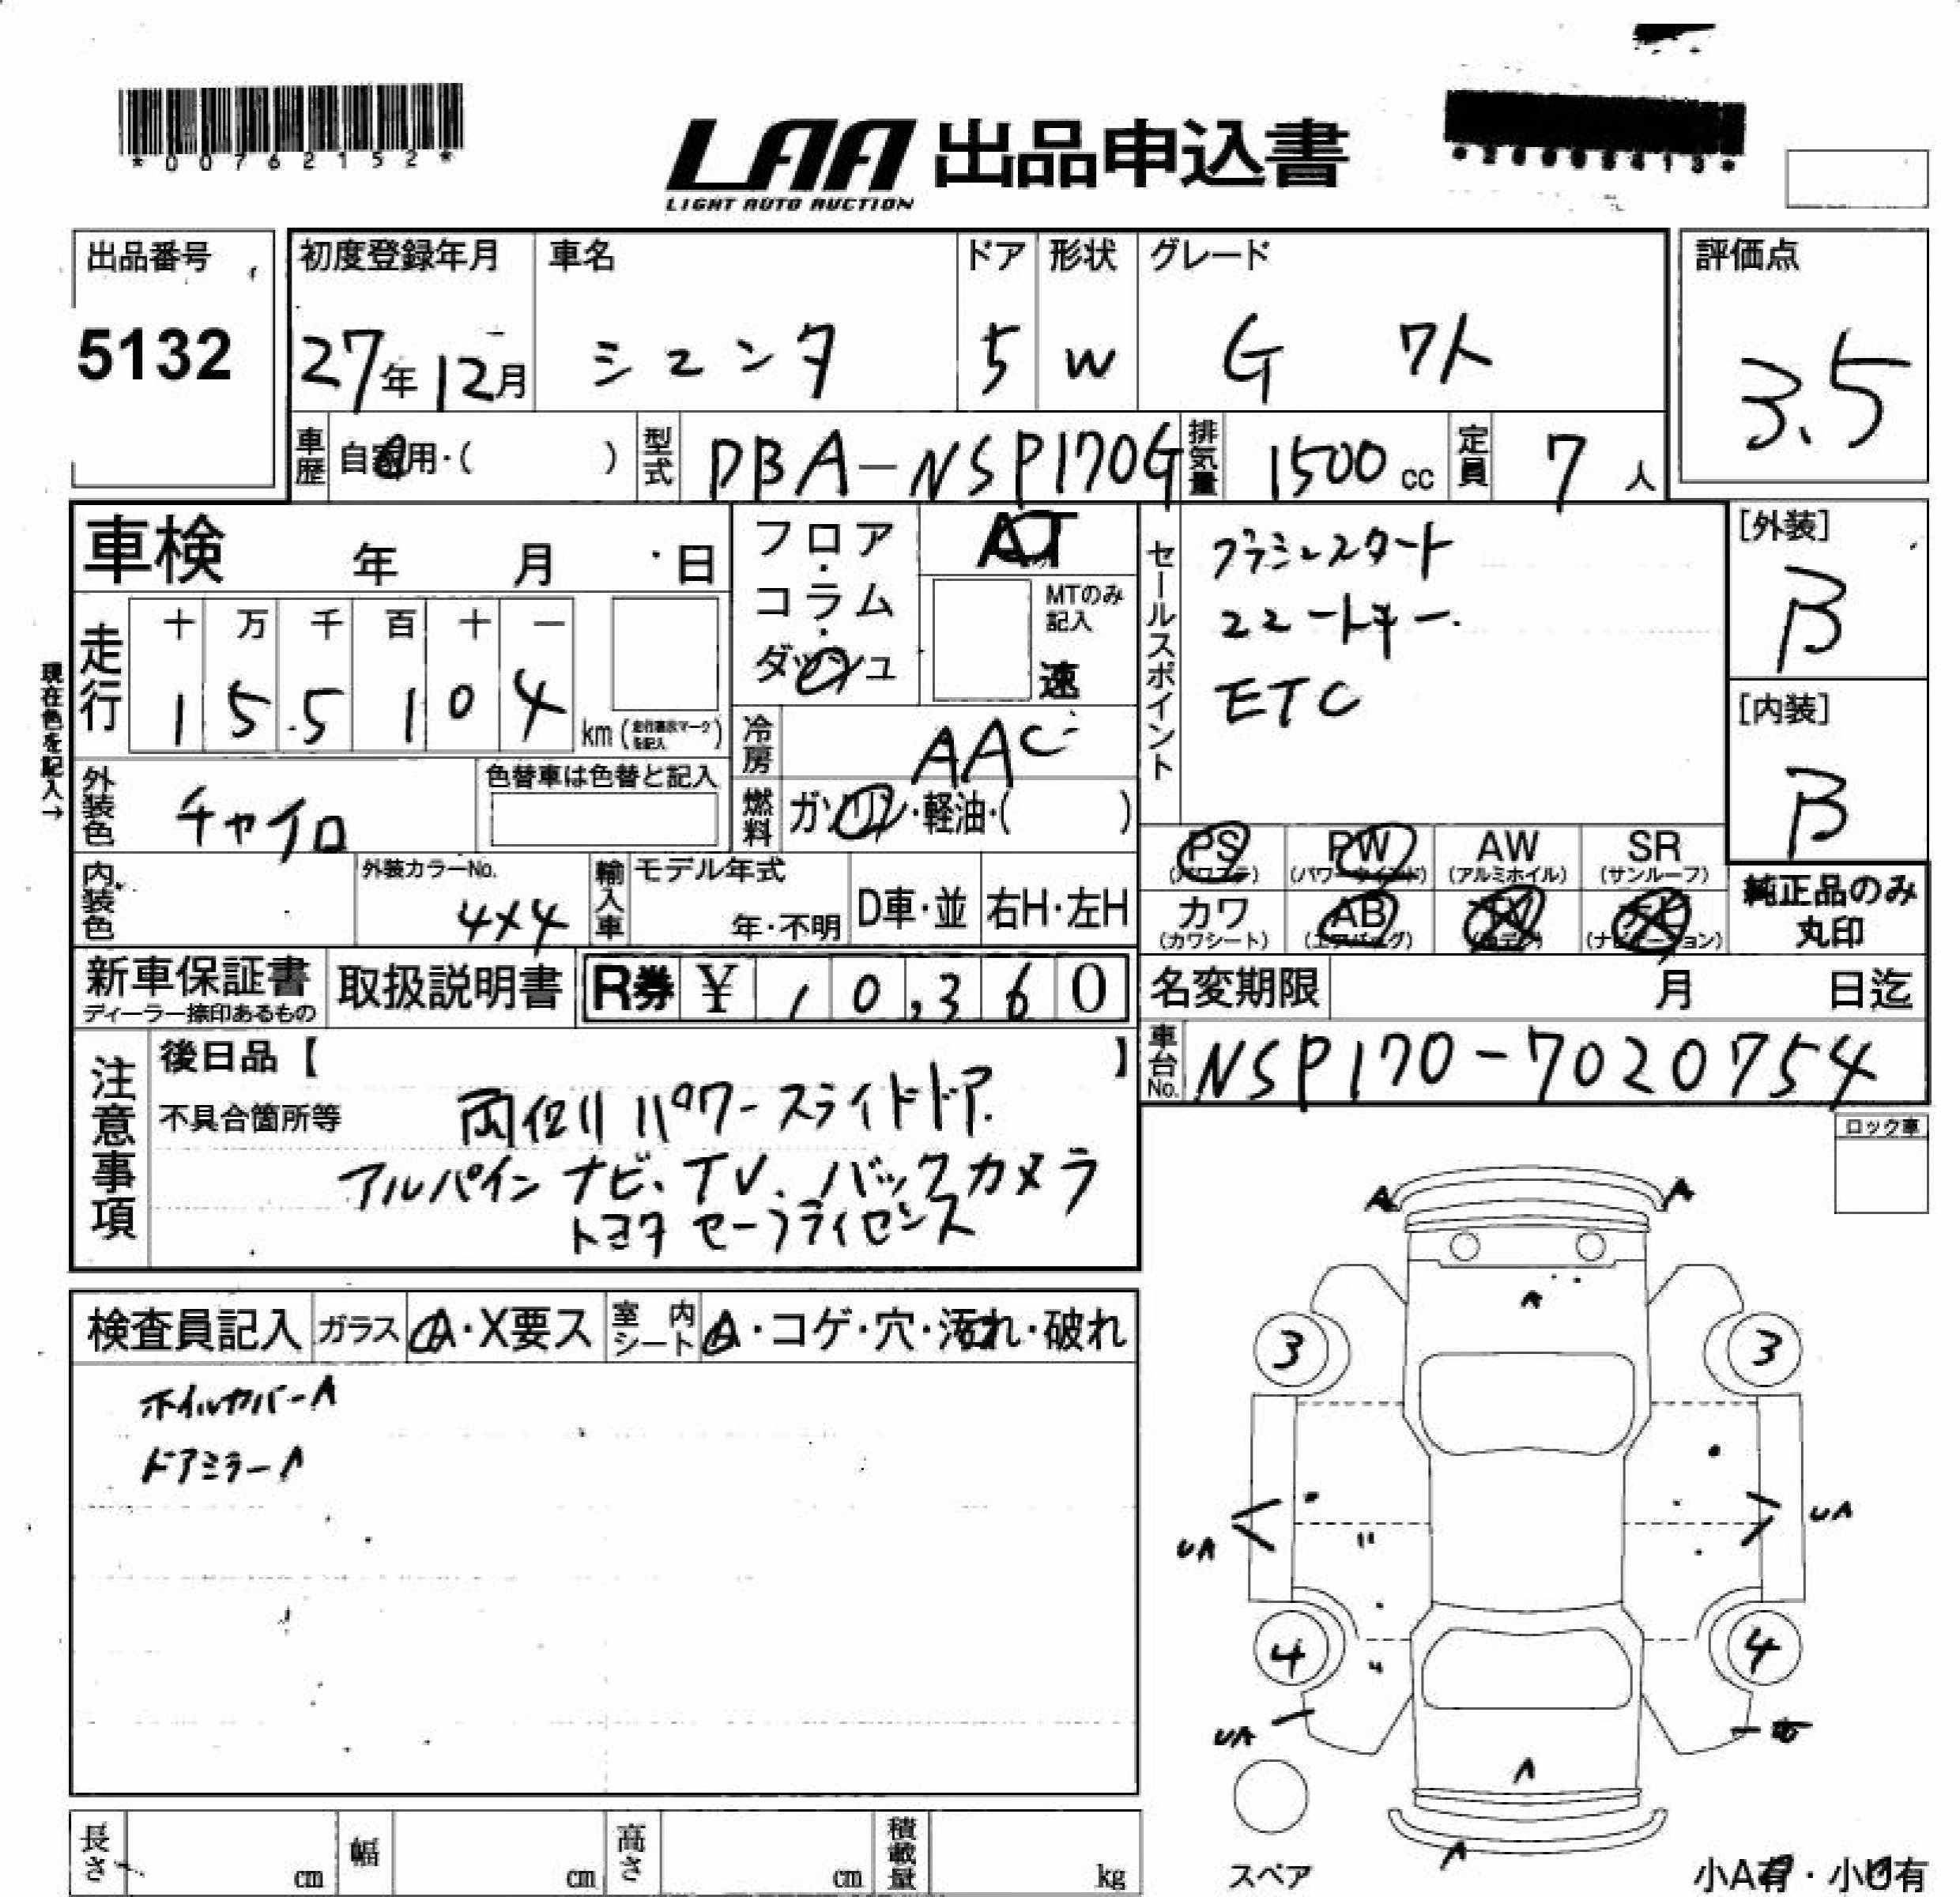 *00762152*
LAA 出品申込書
LIGHT AUTO AUCTION
出品番号
5132
初度登録年月
27年12月
車名
シエンタ
ドア
5
形状
W
グレード
G 7人
評価点
3.5
車歴
自家用・( )
型式
DBA-NSP170G
排気量
1500 cc
定員
7 人
車検 年 月 日
走行
十 万 千 百 十 一
1 5 5 1 0 4
km (走行表示マークを記入)
現在色を記入→
フロア・コラム・ダッシュ
AT
MTのみ記入
速
冷房
AAC
燃料
ガソリン・軽油・( )
外装色
チャイロ
色替車は色替と記入
内装色
外装カラーNo.
4X4
輸入車
モデル年式
年・不明
D車・並
右H・左H
セールスポイント
プッシュスタート
スマートキー
ETC
[外装]
B
[内装]
B
PS
(パワステ)
PW
(パワーウインド)
AW
(アルミホイル)
SR
(サンルーフ)
カワ
(カワシート)
AB
(エアバッグ)
TV
ナビ
(ナビゲーション)
純正品のみ
丸印
新車保証書
ディーラー捺印あるもの
取扱説明書
R券 ¥ 10,360
名変期限 月 日迄
車台No.
NSP170-7020754
注意事項
後日品【 】
不具合箇所等
両側パワースライドドア.
アルパイン ナビ、TV、バックカメラ
トヨタ セーフティセンス
ロック車
検査員記入
ガラス
A・X要ス
室内シート
A・コゲ・穴・汚れ・破れ
ホイルカバーA
ドアミラーA
A
A
A
3
3
UA
UA
4
4
UA
A
A
スペア
小A有・小U有
長さ cm
幅 cm
高さ cm
積載量 kg